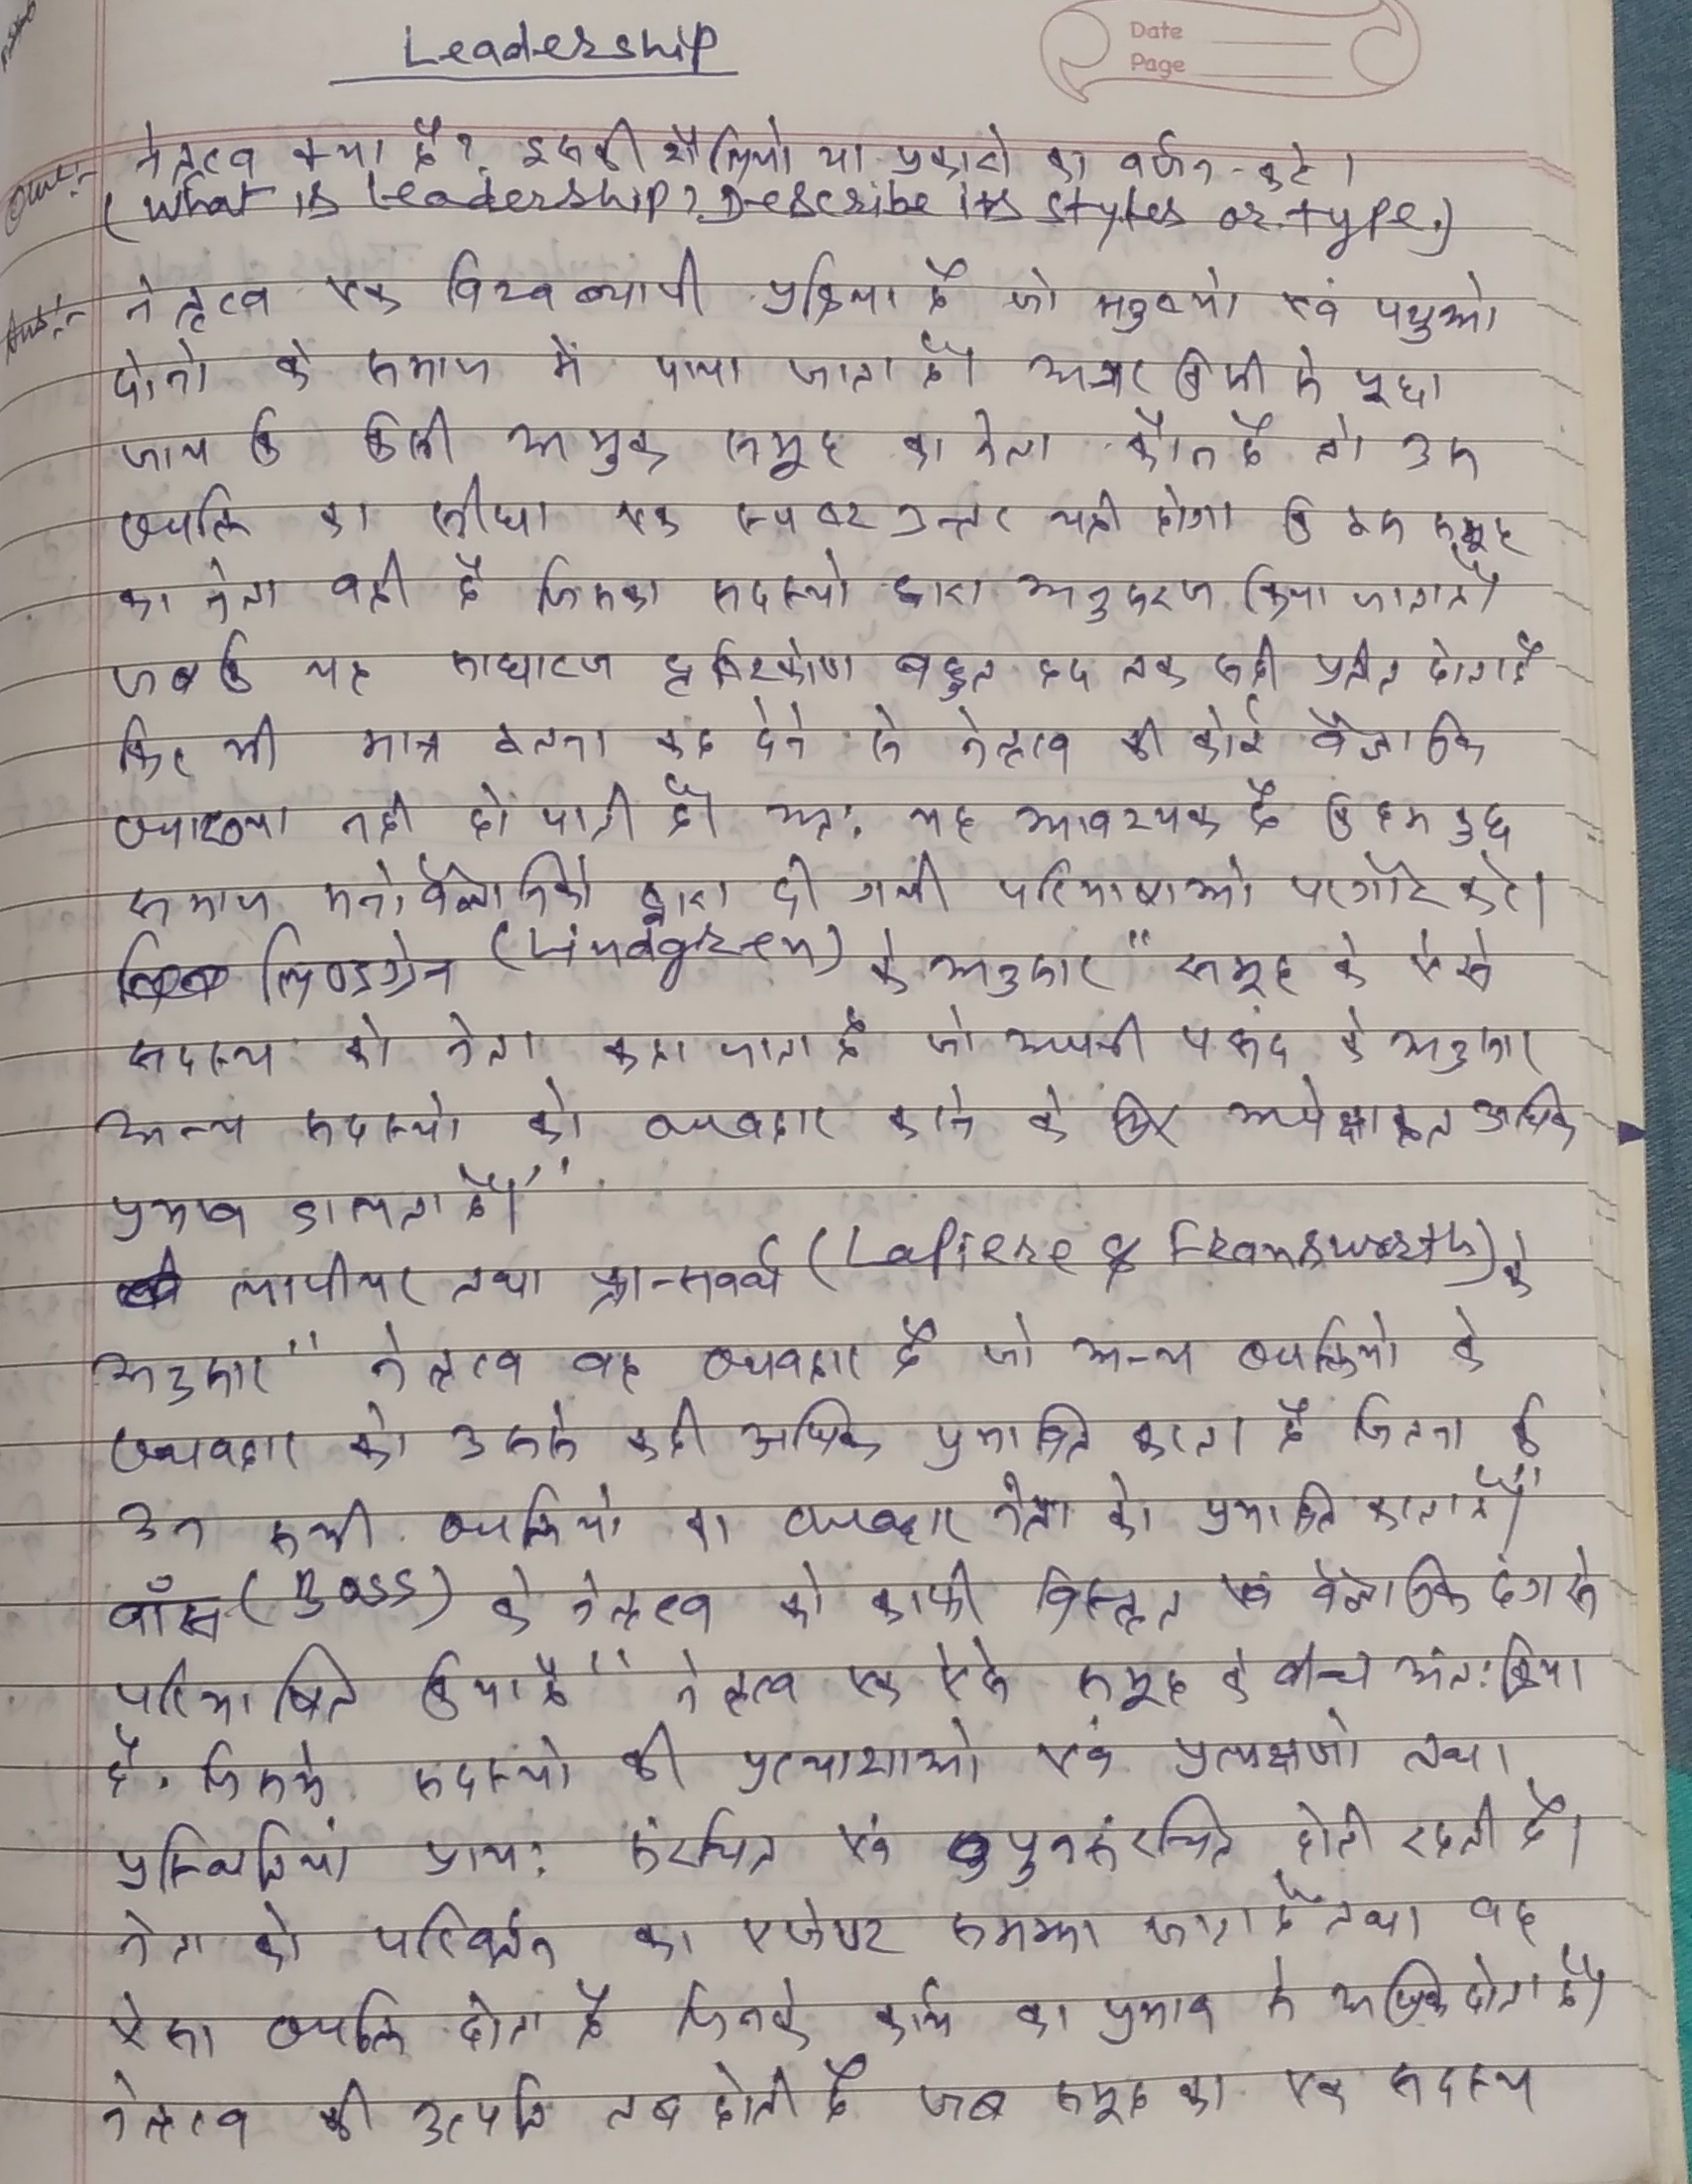 Leadership
Date
Page
Ques:- नेतृत्व क्या है? इसकी शैलियो या प्रकारो का वर्णन करे।
(What is leadership? Describe its styles or type.)
Ans:- नेतृत्व एक विश्वव्यापी प्रक्रिया है जो मनुष्यो एवं पशुओ
दोनो के समाज में पाया जाता है। अगर किसी से पूछा
जाय कि किसी अमुक समूह का नेता कौन है तो उस
व्यक्ति का सीधा एक स्पष्ट उत्तर यही होगा कि इस समूह
का नेता वही है जिसका सदस्यो द्वारा अनुकरण किया जाता है।
जबकि यह साधारण दृष्टिकोण बहुत हद तक सही प्रतीत होता है
फिर भी मात्र इतना कह देने से नेतृत्व की कोई वैज्ञानिक
व्याख्या नही हो पाती है। अतः यह आवश्यक है कि हम कुछ
समाज मनोवैज्ञानिको द्वारा दी गयी परिभाषाओ पर गौर करे।
लिण्डग्रेन (Lindgren) के अनुसार "समूह के ऐसे
सदस्य को नेता कहा जाता है जो अपनी पसंद के अनुसार
अन्य सदस्यो को व्यवहार करने के लिए अपेक्षाकृत अधिक
प्रभाव डालता है।"
लापीयर तथा फ्रान्सवर्थ (Lapiere & Fransworth) के
अनुसार "नेतृत्व वह व्यवहार है जो अन्य व्यक्तियो के
व्यवहार को उससे कही अधिक प्रभावित करता है जितना कि
उन सभी व्यक्तियो का व्यवहार नेता को प्रभावित करता है।"
बाँस (Bass) के नेतृत्व को काफी विस्तृत एवं वैज्ञानिक ढंग से
परिभाषित किया है "नेतृत्व एक ऐसे समूह के बीच अंतःक्रिया
है, जिसमे सदस्यो की प्रत्याशाओ एवं प्रत्यक्षणो तथा
प्रस्थितियां प्रायः संरचित एवं पुनर्संरचित होती रहती है।
नेता को परिवर्तन का एजेण्ट समझा जाता है तथा वह
ऐसा व्यक्ति होता है जिनके कार्य का प्रभाव से अधिक होता है।
नेतृत्व की उत्पति तब होती है जब समूह का एक सदस्य